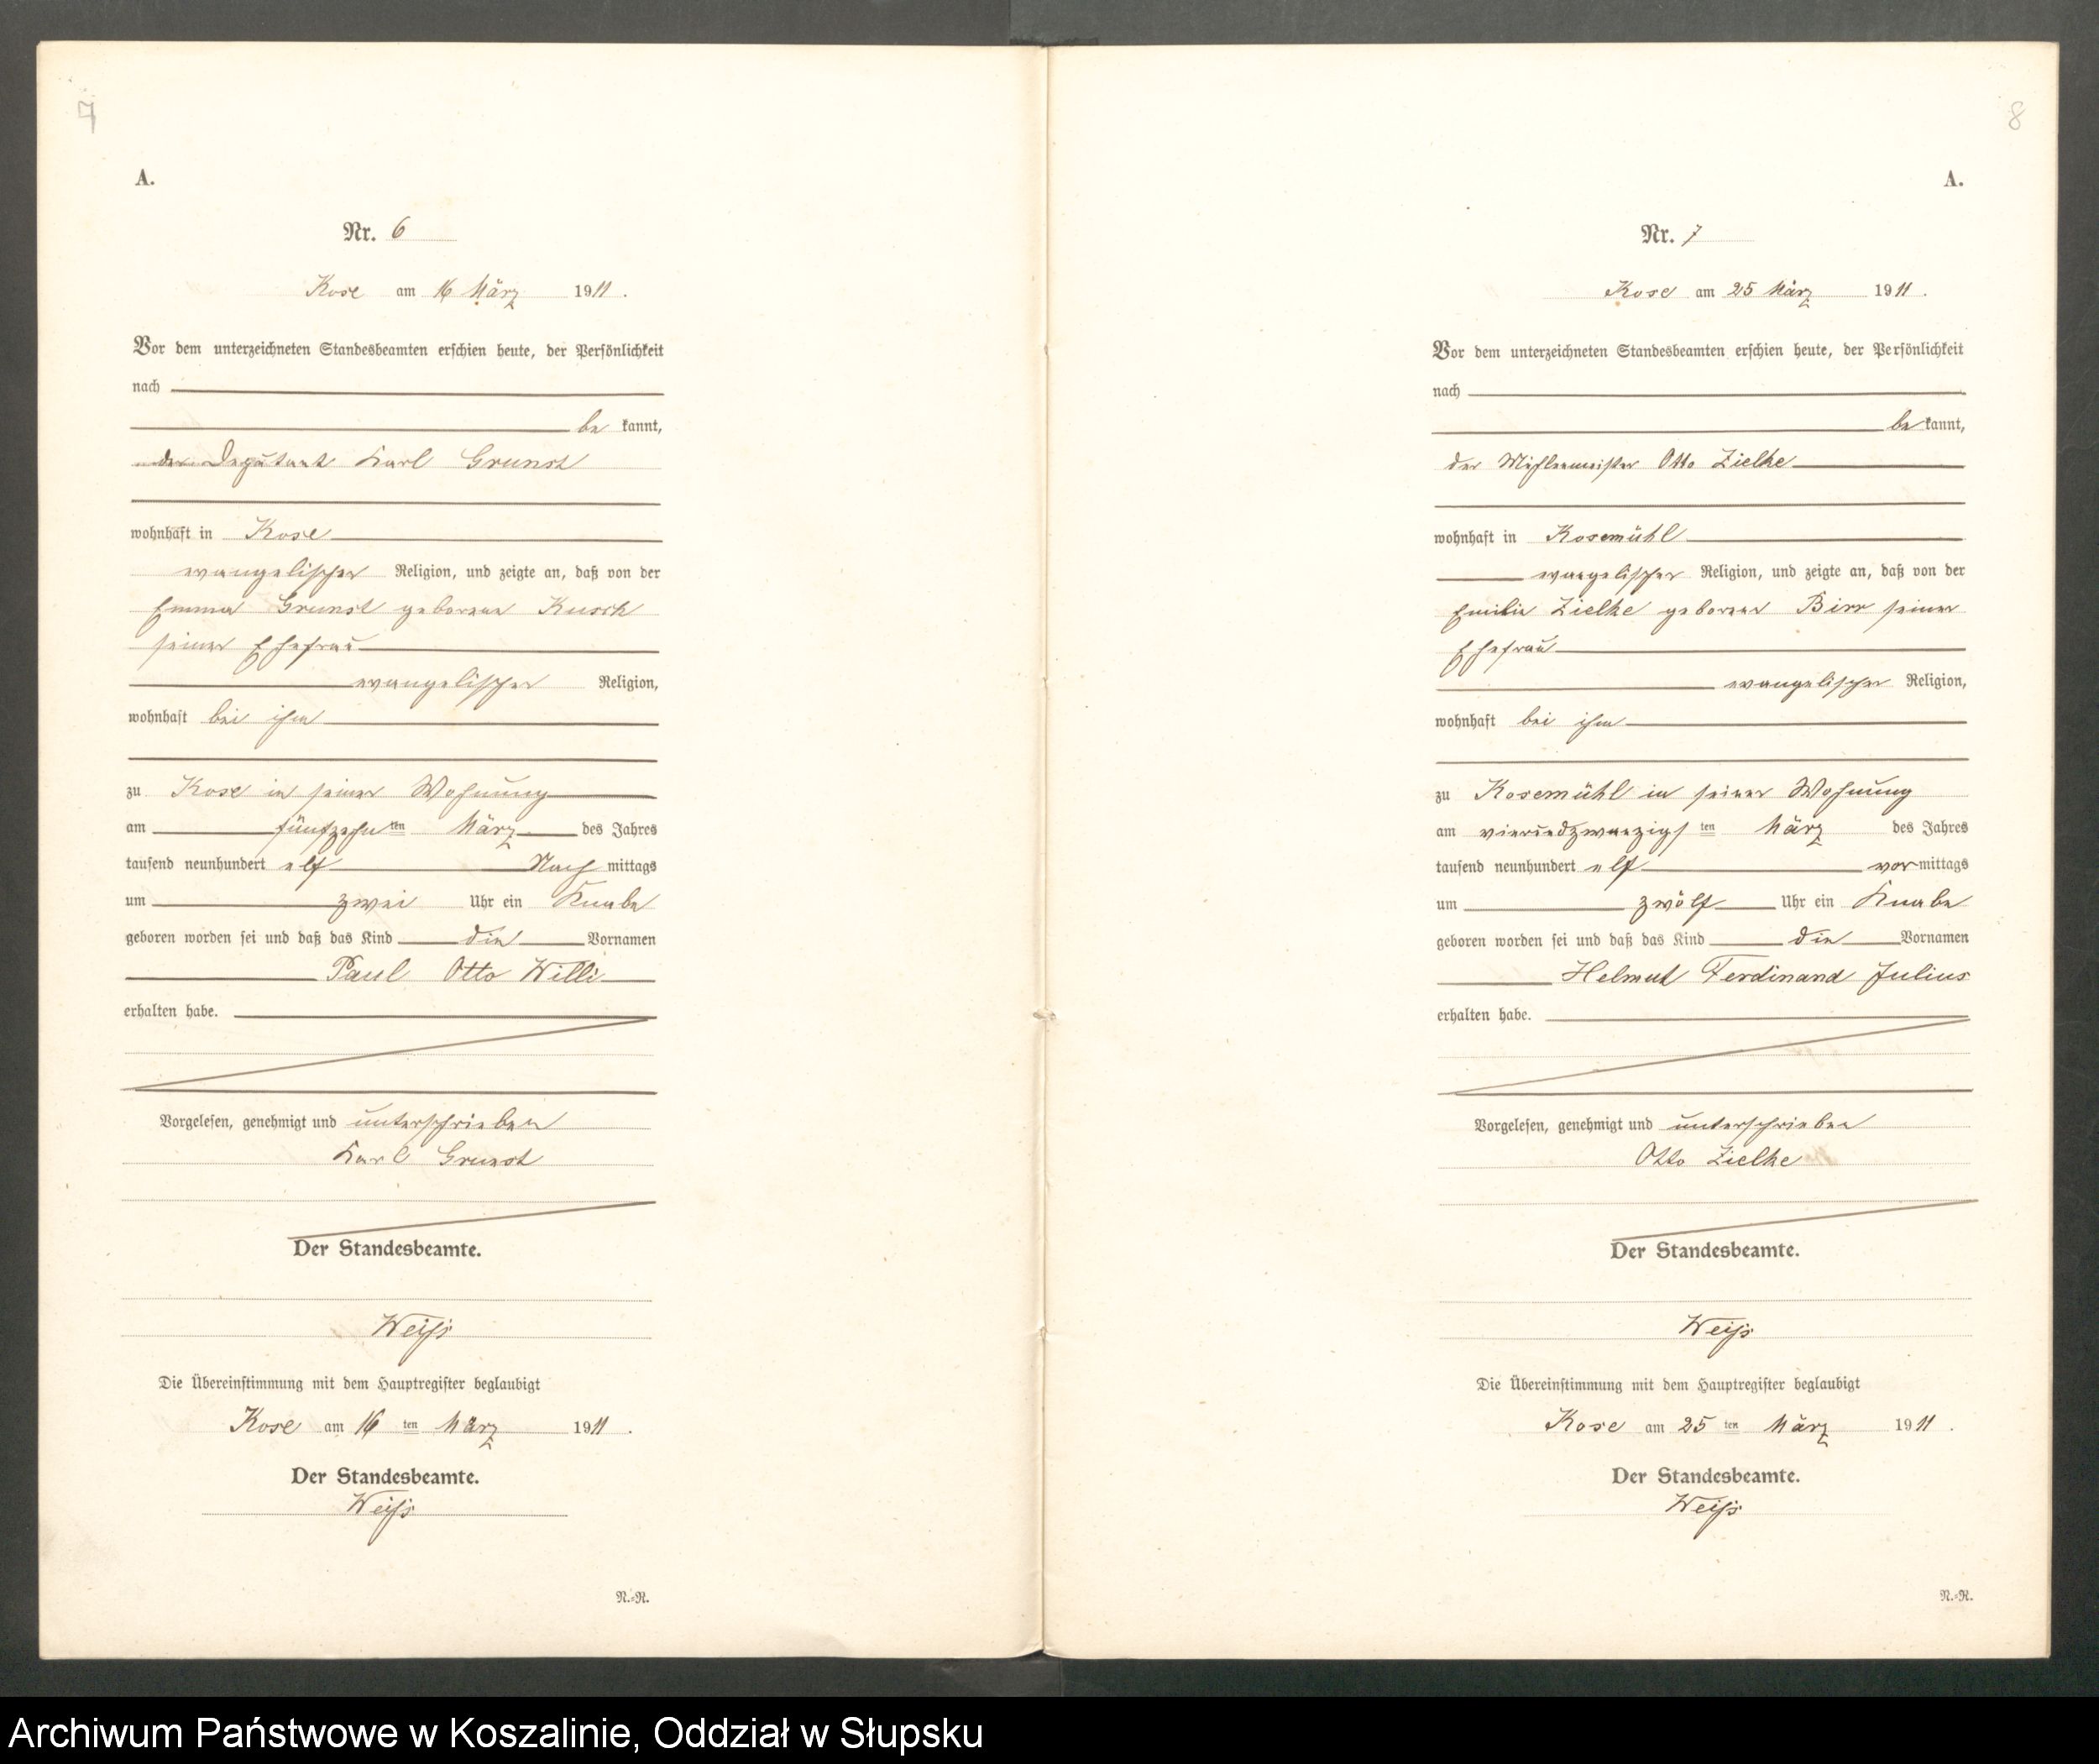 7
A.
Nr. 6
Kose am 16 März 1911.
Vor dem unterzeichneten Standesbeamten erschien heute, der Persönlichkeit
nach
be kannt,
der Deputant Karl Grunst
wohnhaft in Kose
evangelischer Religion, und zeigte an, daß von der
Emma Grunst geborene Kusch
seiner Ehefrau
evangelischer Religion,
wohnhaft bei ihm
zu Kose in seiner Wohnung
am fünfzehn ten März des Jahres
tausend neunhundert elf Nach mittags
um zwei Uhr ein Knabe
geboren worden sei und daß das Kind die Vornamen
Paul Otto Willi
erhalten habe.
Vorgelesen, genehmigt und unterschrieben
Karl Grunst
Der Standesbeamte.
Weiß
Die Übereinstimmung mit dem Hauptregister beglaubigt
Kose am 16 ten März 1911.
Der Standesbeamte.
Weiß
N.=R.
8
A.
Nr. 7
Kose am 25 März 1911.
Vor dem unterzeichneten Standesbeamten erschien heute, der Persönlichkeit
nach
be kannt,
der Mühlenmeister Otto Zielke
wohnhaft in Kosemühl
evangelischer Religion, und zeigte an, daß von der
Emilie Zielke geborene Birr seiner
Ehefrau
evangelischer Religion,
wohnhaft bei ihm
zu Kosemühl in seiner Wohnung
am vierundzwanzigs ten März des Jahres
tausend neunhundert elf vor mittags
um zwölf Uhr ein Knabe
geboren worden sei und daß das Kind die Vornamen
Helmut Ferdinand Julius
erhalten habe.
Vorgelesen, genehmigt und unterschrieben
Otto Zielke
Der Standesbeamte.
Weiß
Die Übereinstimmung mit dem Hauptregister beglaubigt
Kose am 25 ten März 1911.
Der Standesbeamte.
Weiß
N.=R.
Archiwum Państwowe w Koszalinie, Oddział w Słupsku